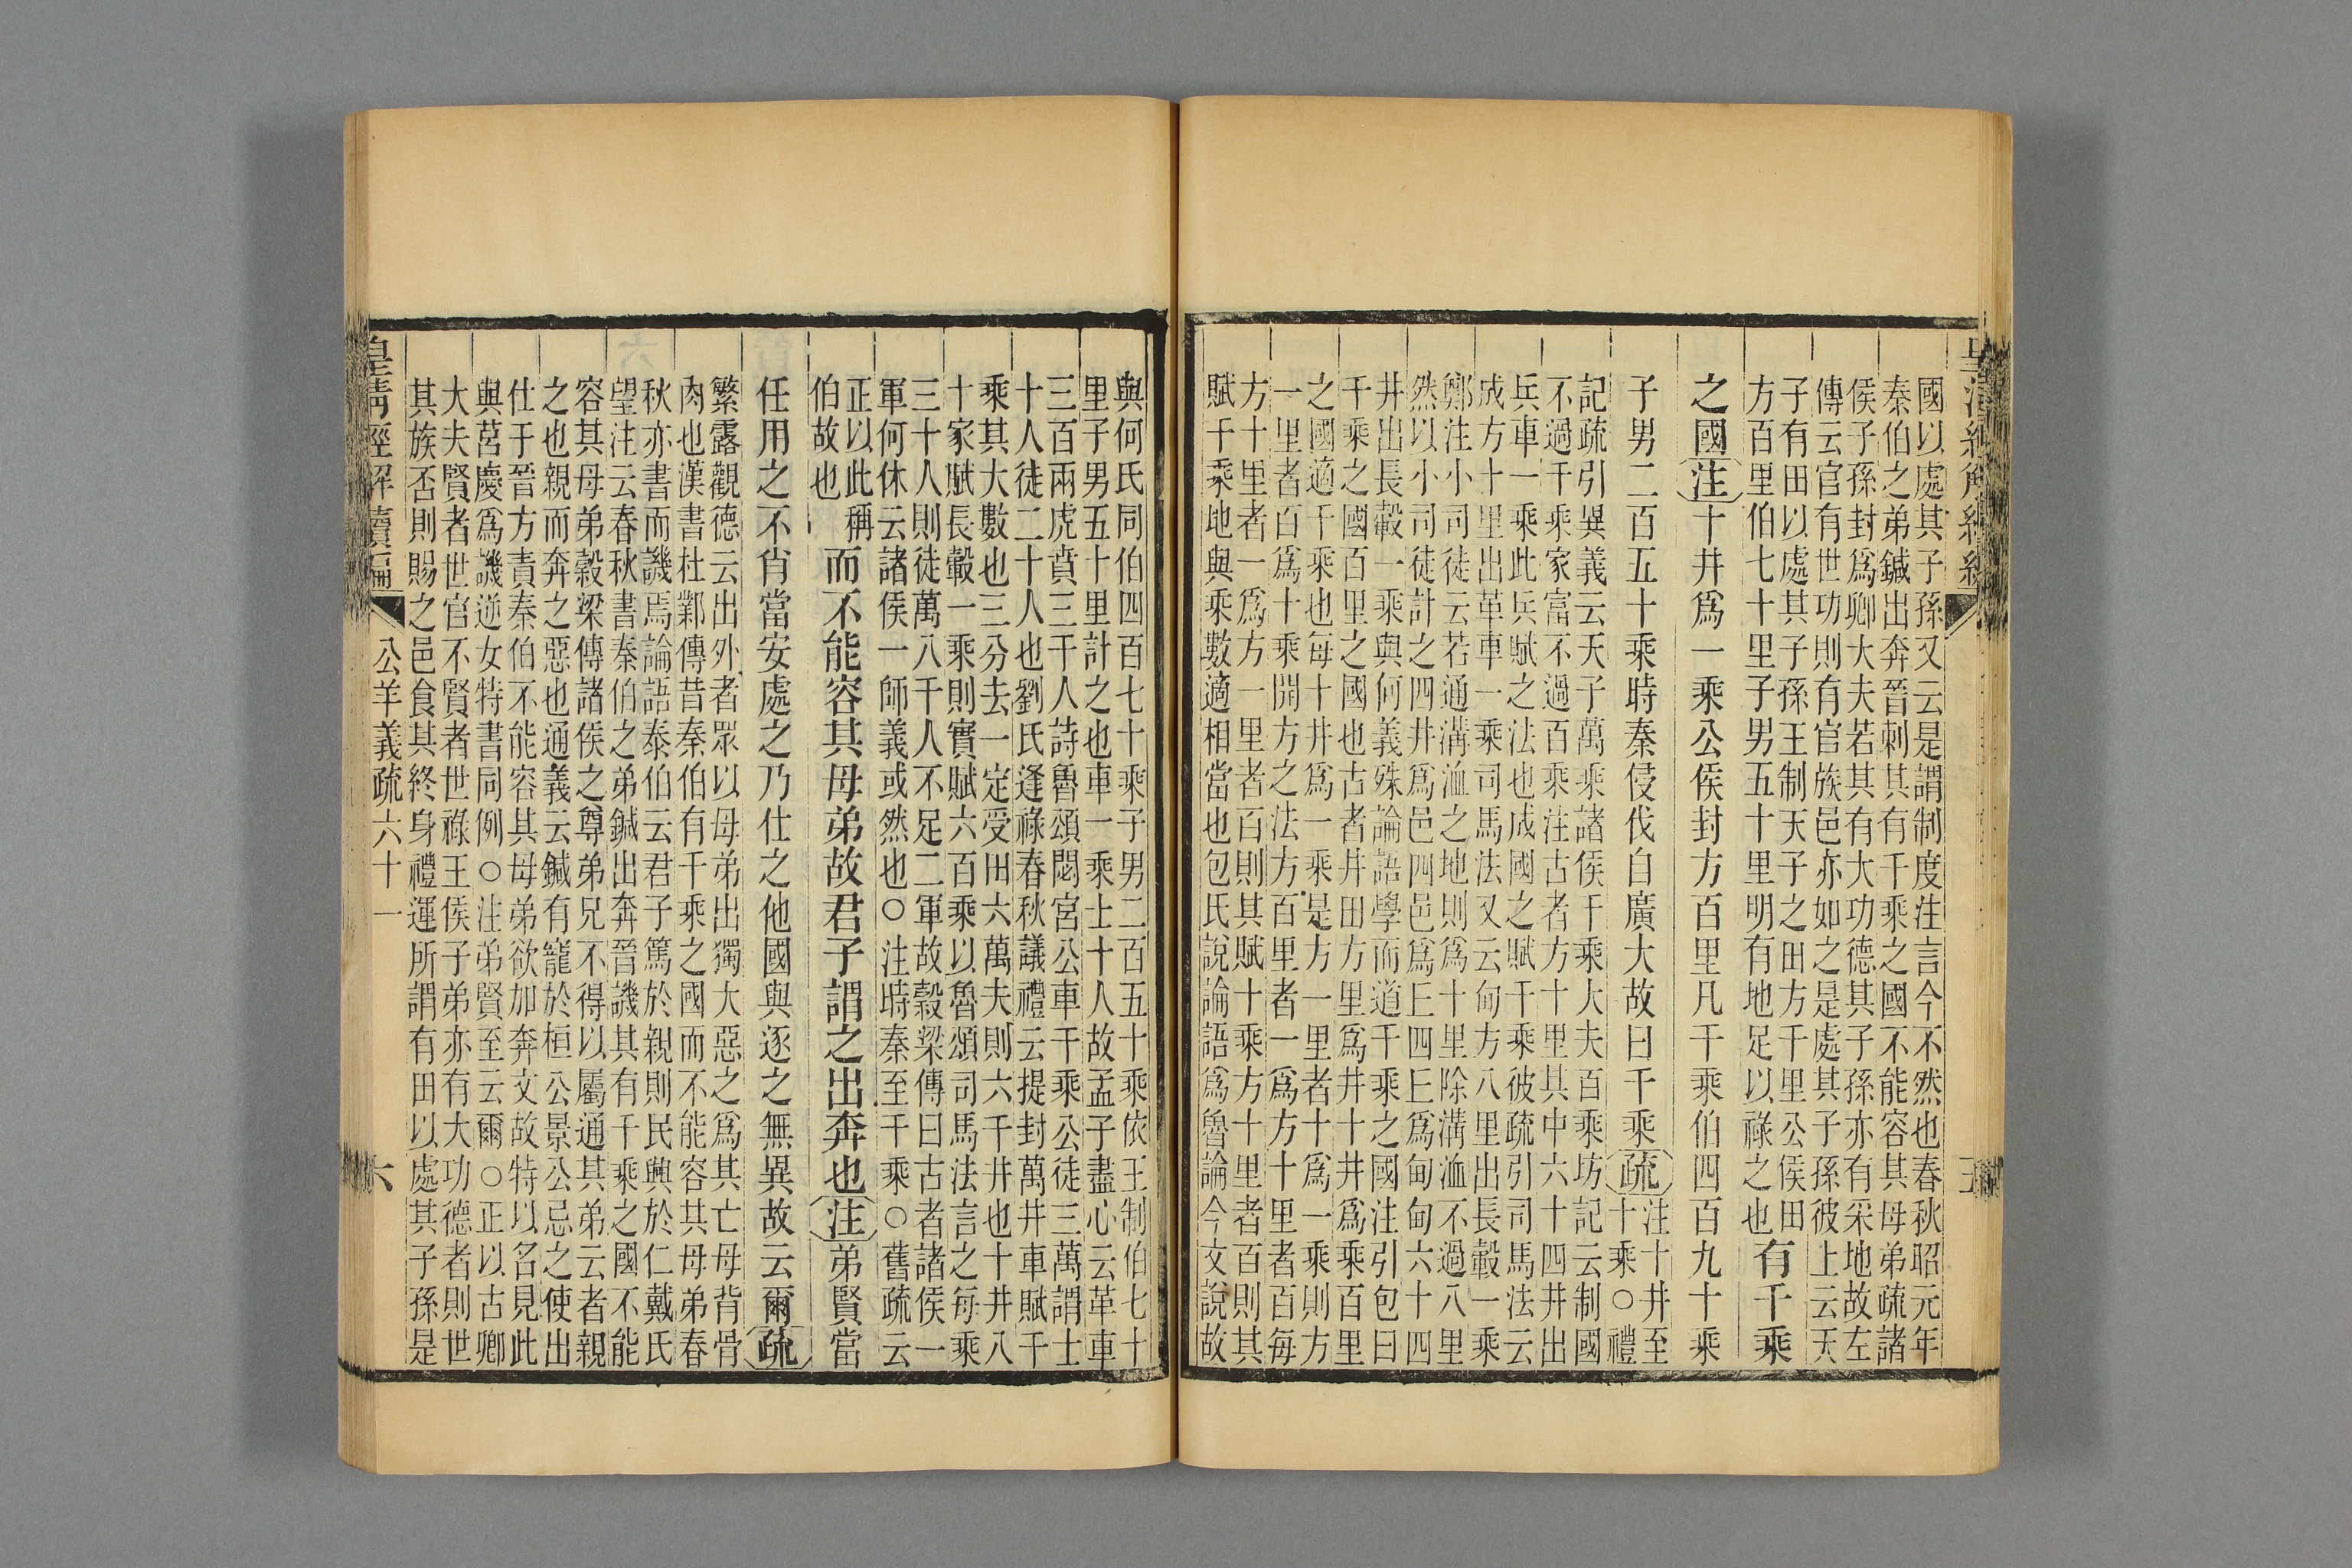 國以處其子孫又云是謂制度注言今不然也春秋昭元年
秦伯之弟鍼出奔晉刺其有千乘之國不能容其母弟疏諸
侯子孫封爲卿大夫若其有大功德其子孫亦有采地故左
傳云官有世功則有官族邑亦如之是處其子孫彼上云天
子有田以處其子孫王制天子之田方千里公侯田
方百里伯七十里子男五十里明有地足以祿之也
有千乘
之國注十井爲一乘公侯封方百里凡千乘伯四百九十乘
子男二百五十乘時秦侵伐自廣大故曰千乘疏
注十井至
十乘○禮
記疏引異義云天子萬乘諸侯千乘大夫百乘坊記云制國
不過千乘家富不過百乘注古者方十里其中六十四井出
兵車一乘此兵賦之法也成國之賦千乘彼疏引司馬法云
成方十里出革車一乘司馬法又云甸方八里出長轂一乘
鄭注小司徒云若通溝洫之地則爲十里除溝洫不過八里
然以小司徒計之四井爲邑四邑爲丘四丘爲甸甸六十四
井出長轂一乘與何義殊論語學而道千乘之國注引包曰
千乘之國百里之國也古者井田方里爲井十井爲乘百里
之國適千乘也每十井爲一乘是方一里者十爲一乘則方
一里者百爲十乘開方之法方百里者一爲方十里者百每
方十里者一爲方一里者百則其賦十乘方十里者百則其
賦千乘地與乘數適相當也包氏說論語爲魯論今文說故
與何氏同伯四百七十乘子男二百五十乘依王制伯七十
里子男五十里計之也車一乘士十人故孟子盡心云革車
三百兩虎賁三千人詩魯頌閟宮公車千乘公徒三萬謂士
十人徒二十人也劉氏逢祿春秋議禮云提封萬井車賦千
乘其大數也三分去一定受田六萬夫則六千井也十井八
十家賦長轂一乘則實賦六百乘以魯頌司馬法言之每乘
三十人則徒萬八千人不足二軍故穀梁傳曰古者諸侯一
軍何休云諸侯一師義或然也○注時秦至千乘○舊疏云
正以此稱
伯故也
而不能容其母弟故君子謂之出奔也注弟賢當
任用之不肖當安處之乃仕之他國與逐之無異故云爾疏
繁露觀德云出外者眾以母弟出獨大惡之爲其亡母背骨
肉也漢書杜鄴傳昔秦伯有千乘之國而不能容其母弟春
秋亦書而譏焉論語泰伯云君子篤於親則民興於仁戴氏
望注云春秋書秦伯之弟鍼出奔晉譏其有千乘之國不能
容其母弟穀梁傳諸侯之尊弟兄不得以屬通其弟云者親
之也親而奔之惡也通義云鍼有寵於桓公景公忌之使出
仕于晉方責秦伯不能容其母弟欲加奔文故特以名見此
與莒慶爲譏逆女特書同例○注弟賢至云爾○正以古卿
大夫賢者世官不賢者世祿王侯子弟亦有大功德者則世
其族否則賜之邑食其終身禮運所謂有田以處其子孫是
皇清經解續編
公羊義疏六十一
六